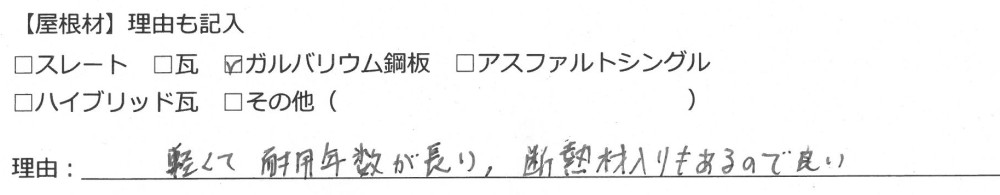 【屋根材】理由も記入
□スレート □瓦 ☑ガルバリウム鋼板 □アスファルトシングル
□ハイブリッド瓦 □その他（ ）
理由：軽くて 耐用年数が長い，断熱材入りもあるので良い